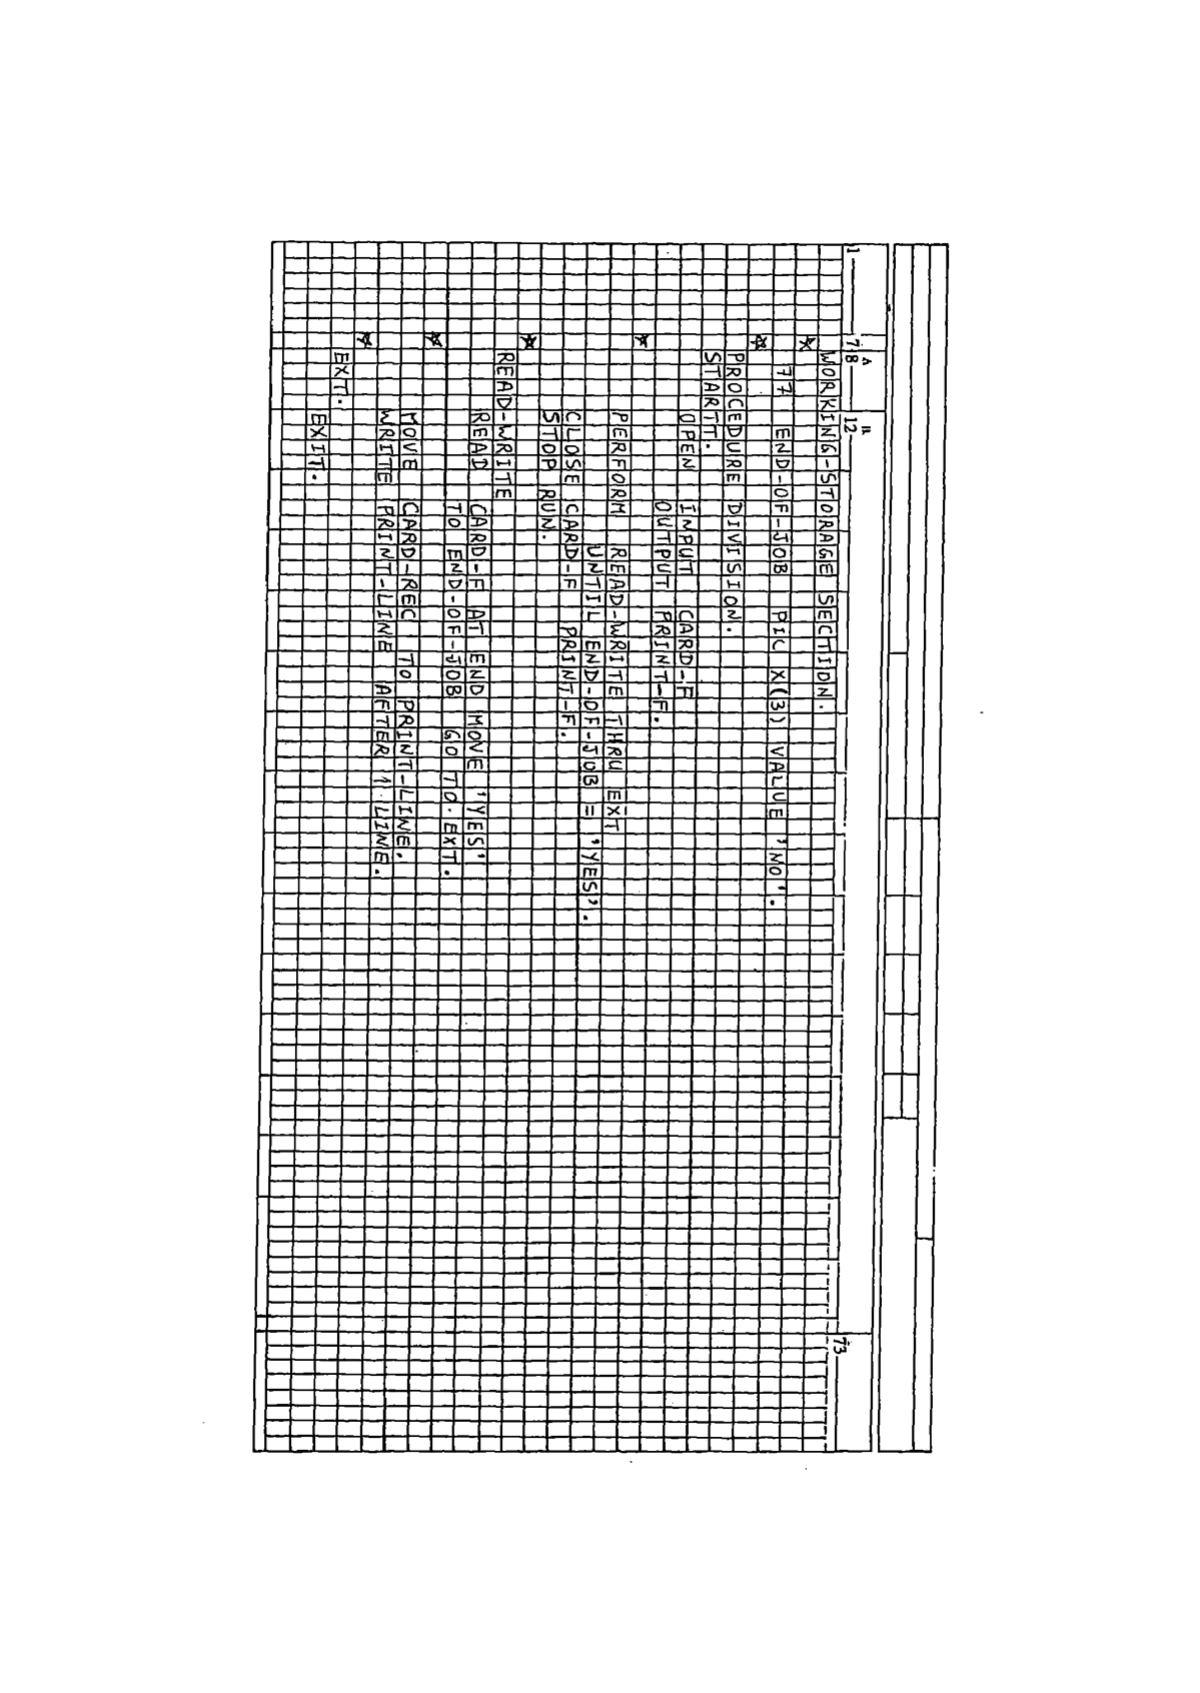 A B
1 7 8 12 73
WORKING-STORAGE SECTION.
*
77 END-OF-JOB PIC X(3) VALUE 'NO'.
*
PROCEDURE DIVISION.
STARTT.
OPEN INPUT CARD-F
OUTPUT PRINT-F.
*
PERFORM READ-WRITE THRU EXT
UNTIL END-OF-JOB = 'YES'.
CLOSE CARD-F PRINT-F.
STOP RUN.
*
READ-WRITE
READ CARD-F AT END MOVE 'YES'
TO END-OF-JOB GO TO EXT.
*
MOVE CARD-REC TO PRINT-LINE.
WRITE PRINT-LINE AFTER 1 LINE.
*
EXT.
EXIT.